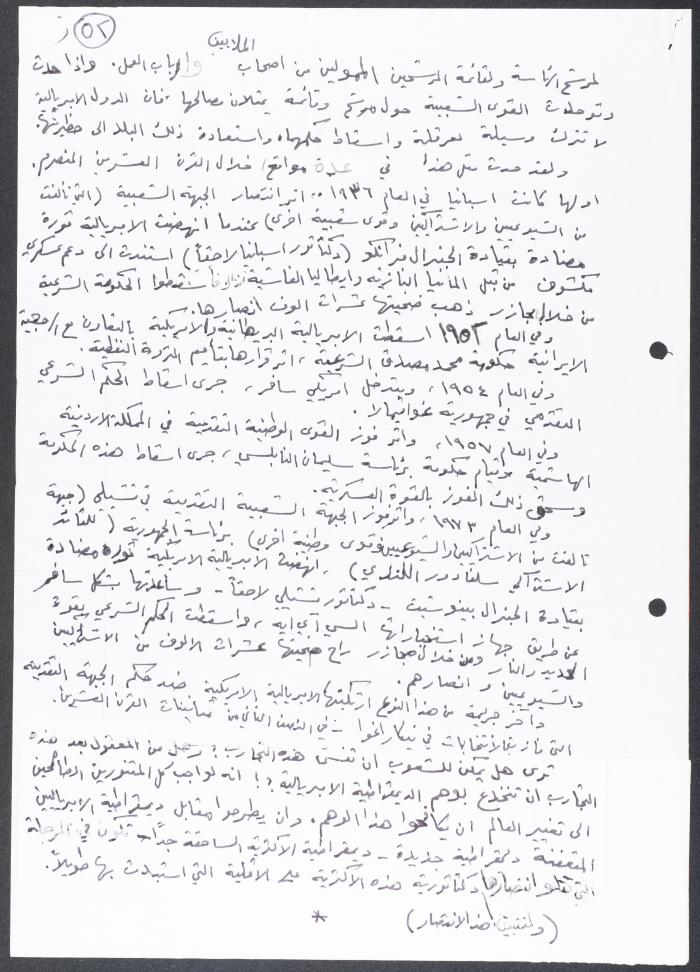 ٥٢
الملايين
لمرشح الرئاسة ولقائمة المرشحين الممولين من اصحاب وارباب العمل. واذا حدث
وتوحدت القوى الشعبية حول مرشح وقائمة يمثلان مصالحها، فان الدول الامبريالية
لا تترك وسيلة لعرقلة واسقاط حكمها، واستعادة ذلك البلد الى حظيرتها.
ولقد حدث مثل هذا في عدة مواقع خلال القرن العشرين المنصرم.
اولها كانت اسبانيا في العام ١٩٣٦.. اثر انتصار الجبهة الشعبية (التي تألفت
من الشيوعيين والاشتراكيين وقوى شعبية اخرى) عندما انهضت الامبريالية ثورة
مضادة بقيادة الجنرال فرانكو (دكتاتور اسبانيا لاحقاً) استندت الى دعم عسكري
مكشوف من قبل المانيا النازية وايطاليا الفاشية فأسقطوا الحكومة الشرعية
من خلال مجازر ذهب ضحيتها عشرات الوف انصارها.
وفي العام ١٩٥٢ اسقطت الامبريالية البريطانية والامريكية بالتعاون مع الرجعية
الايرانية حكومة محمد مصدق الشرعية، اثر قرارها بتأميم الثروة النفطية.
وفي العام ١٩٥٤، وبتدخل امريكي سافر، جرى اسقاط الحكم الشرعي
التقدمي في جمهورية غواتيمالا.
وفي العام ١٩٥٧، واثر فوز القوى الوطنية التقدمية في المملكة الاردنية
الهاشمية وقيام حكومة برئاسة سليمان النابلسي، جرى اسقاط هذه الحكومة
وسحق ذلك الفوز بالقوة العسكرية.
وفي العام ١٩٧٣، واثر فوز الجبهة الشعبية التقدمية في تشيلي (جبهة
تالفت من الاشتراكيين والشيوعيين وقوى وطنية اخرى) برئاسة الجمهورية (للقائد
الاشتراكي سلفادور اللندي)، انهضت الامبريالية الامريكية ثورة مضادة
بقيادة الجنرال بينوشيت - دكتاتور تشيلي لاحقاً - وساعدتها بشكل سافر
عن طريق جهاز استخباراتها السي آي ايه، واسقطت الحكم الشرعي بقوة
الحديد والنار ومن خلال مجازر راح ضحيتها عشرات الالوف من الاشتراكيين
والشيوعيين وانصارهم.
وآخر جريمة من هذا النوع ارتكبتها الامبريالية الامريكية ضد حكم الجبهة التقدمية
التي فازت بالانتخابات في نيكاراغوا - في النصف الثاني من ثمانينات القرن العشرين.
ترى هل يمكن للشعوب ان تنسى هذه التجارب؟ وهل من المعقول بعد هذه
التجارب ان تنخدع بوهم الديمقراطية الامبريالية؟! انه لواجب كل المتنورين الطامحين
الى تغيير العالم ان يكافحوا هذا الوهم. وان يطرحوا مقابل ديمقراطية الامبرياليين
المتعفنة ديمقراطية جديدة - ديمقراطية الاكثرية الساحقة جداً - تكون في المرحلة
التي تتلو انتصارها دكتاتورية هذه الاكثرية على الاقلية التي استبدت بها طويلاً.
(ولتثبيت هذا الانتصار) *